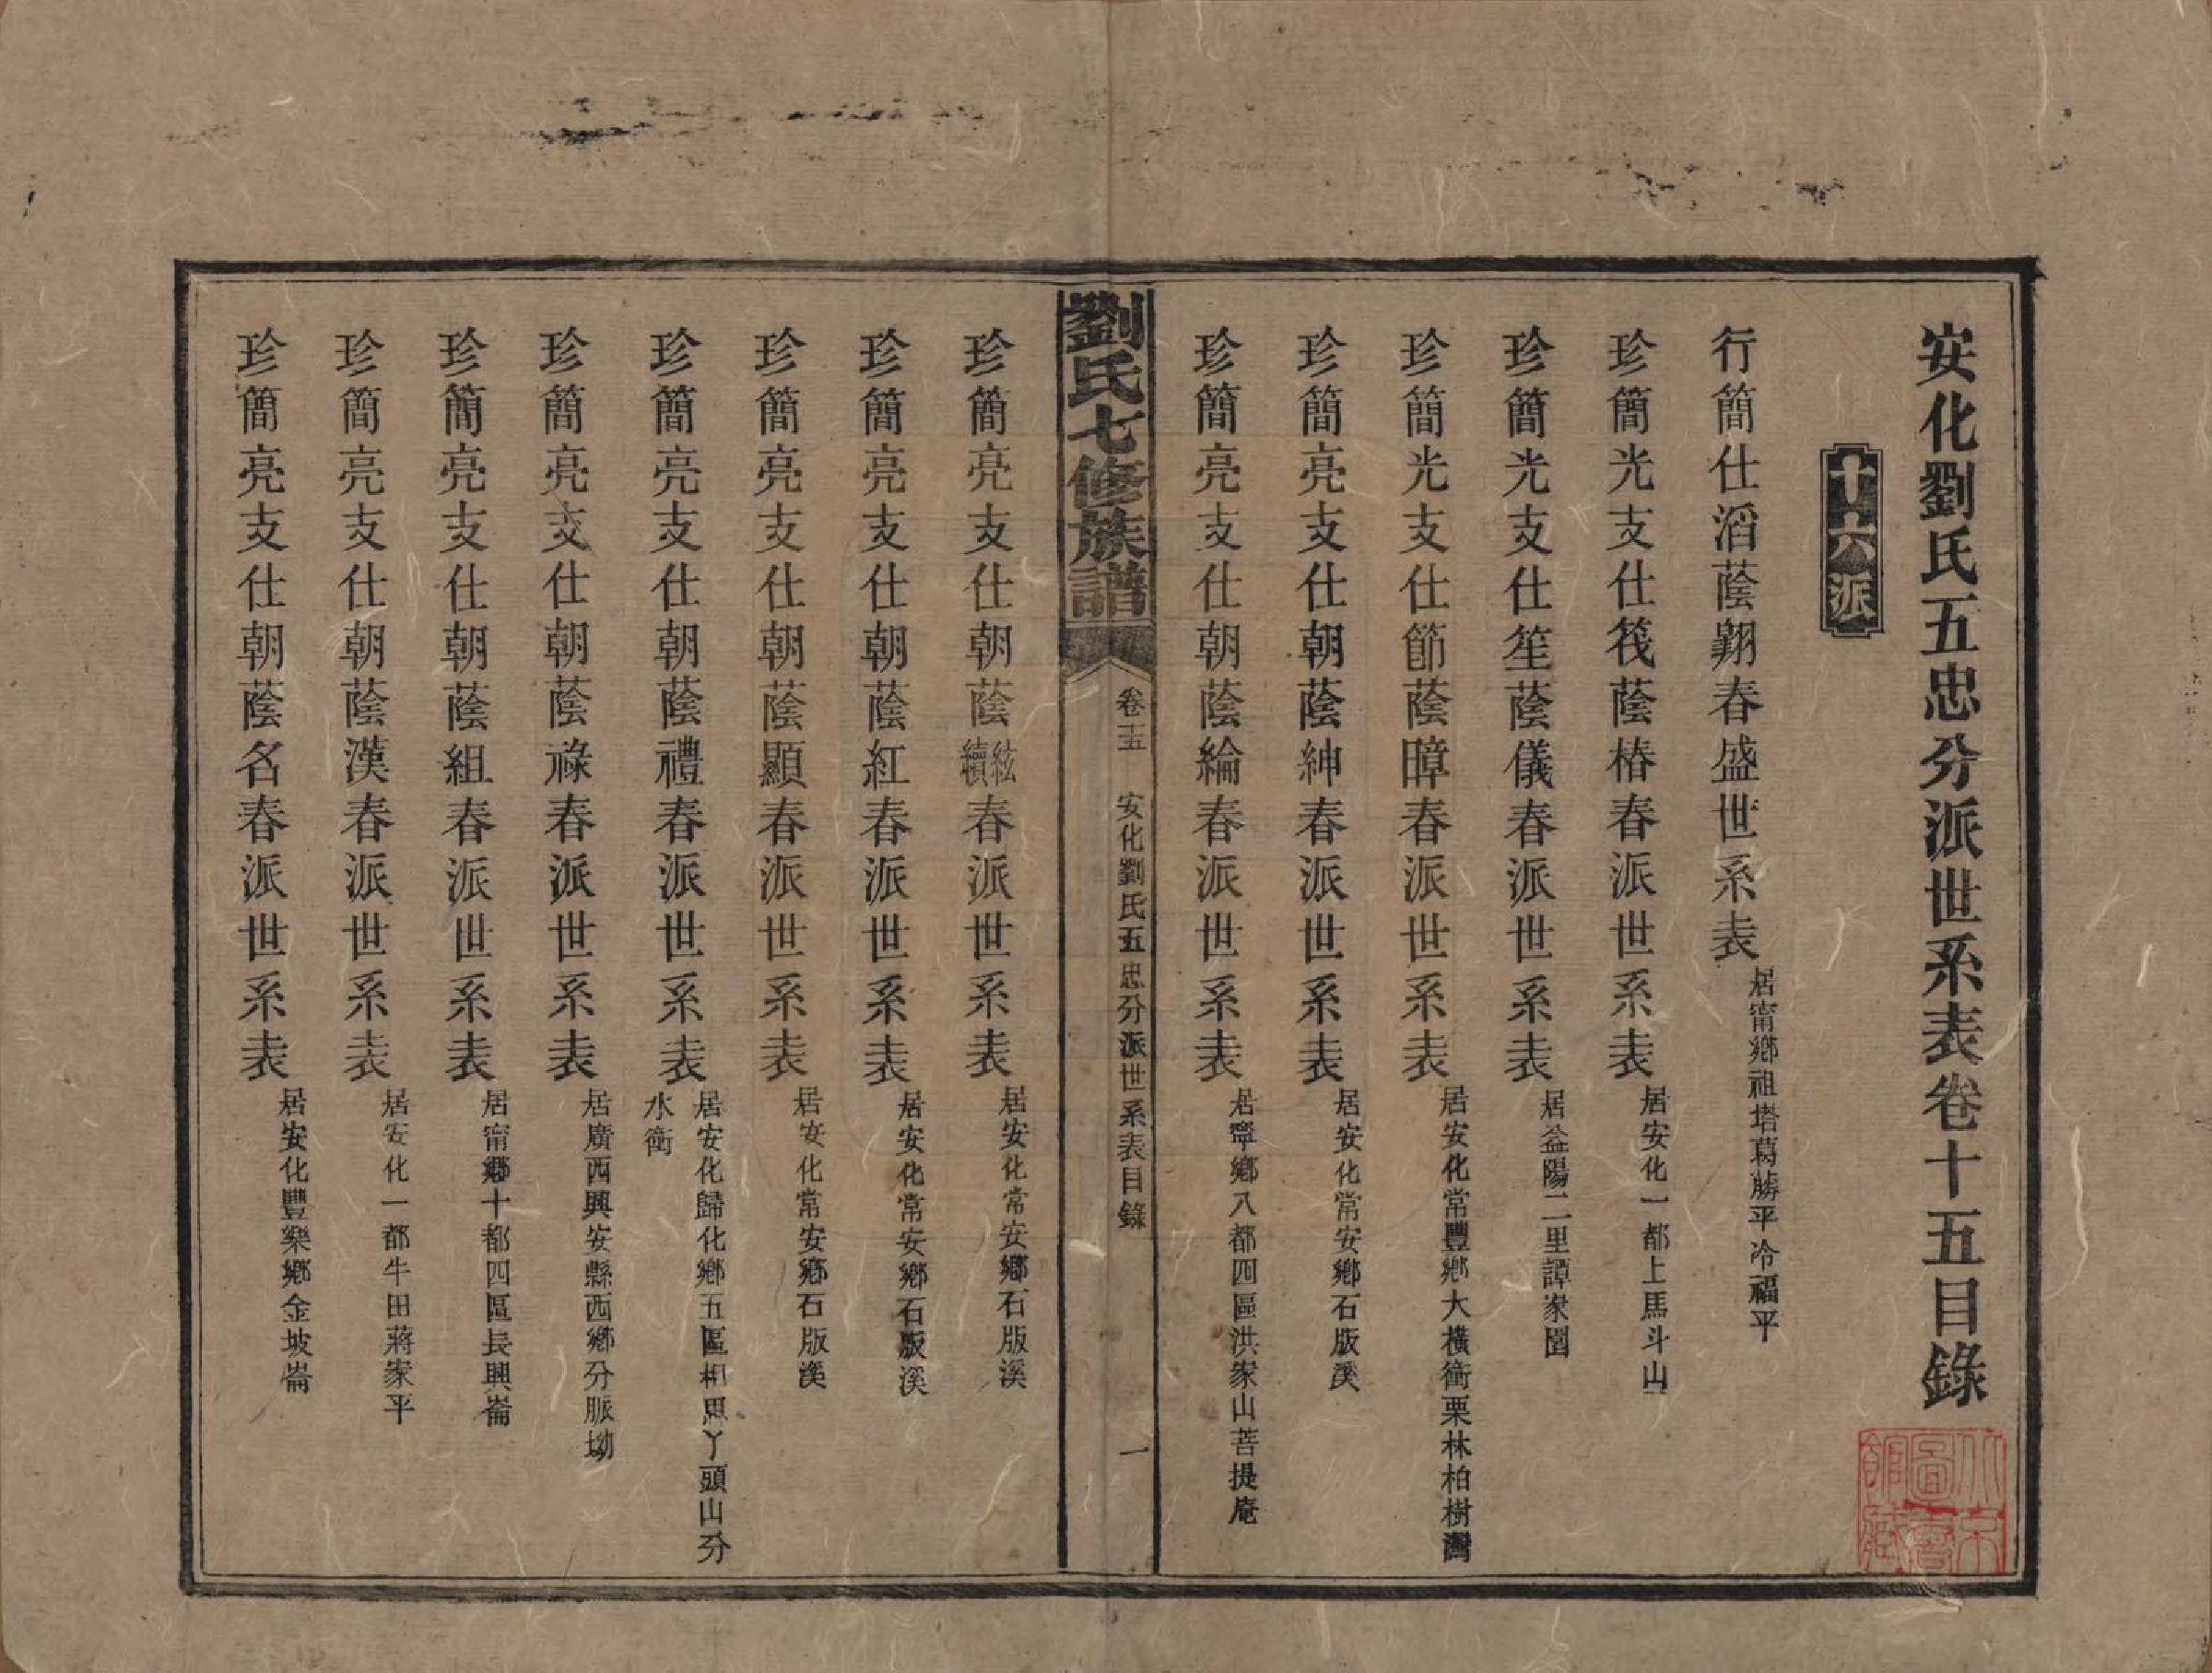 安化劉氏五忠分派世系表卷十五目錄
十六派
行簡仕滔蔭翺春盛世系表 居甯鄉祖塔葛藤平冷福平
珍簡光支仕筏蔭椿春派世系表 居安化一都上馬斗山
珍簡光支仕笙蔭儀春派世系表 居益陽二里譚家園
珍簡光支仕節蔭暲春派世系表 居安化常豐鄉大橫衝栗林柏樹灣
珍簡亮支仕朝蔭紳春派世系表 居安化常安鄉石版溪
珍簡亮支仕朝蔭綸春派世系表 居寧鄉八都四區洪家山菩提庵
劉氏七修族譜 卷十五 安化劉氏五忠分派世系表目錄 一
珍簡亮支仕朝蔭絃續春派世系表 居安化常安鄉石版溪
珍簡亮支仕朝蔭紅春派世系表 居安化常安鄉石版溪
珍簡亮支仕朝蔭顯春派世系表 居安化常安鄉石版溪
珍簡亮支仕朝蔭禮春派世系表 居安化歸化鄉五區相思丫頭山分
水衝
珍簡亮支仕朝蔭祿春派世系表 居廣西興安縣西鄉分脈坳
珍簡亮支仕朝蔭組春派世系表 居甯鄉十都四區長興崙
珍簡亮支仕朝蔭漢春派世系表 居安化一都牛田蔣家平
珍簡亮支仕朝蔭名春派世系表 居安化豐樂鄉金坡崙
北京圖書館藏